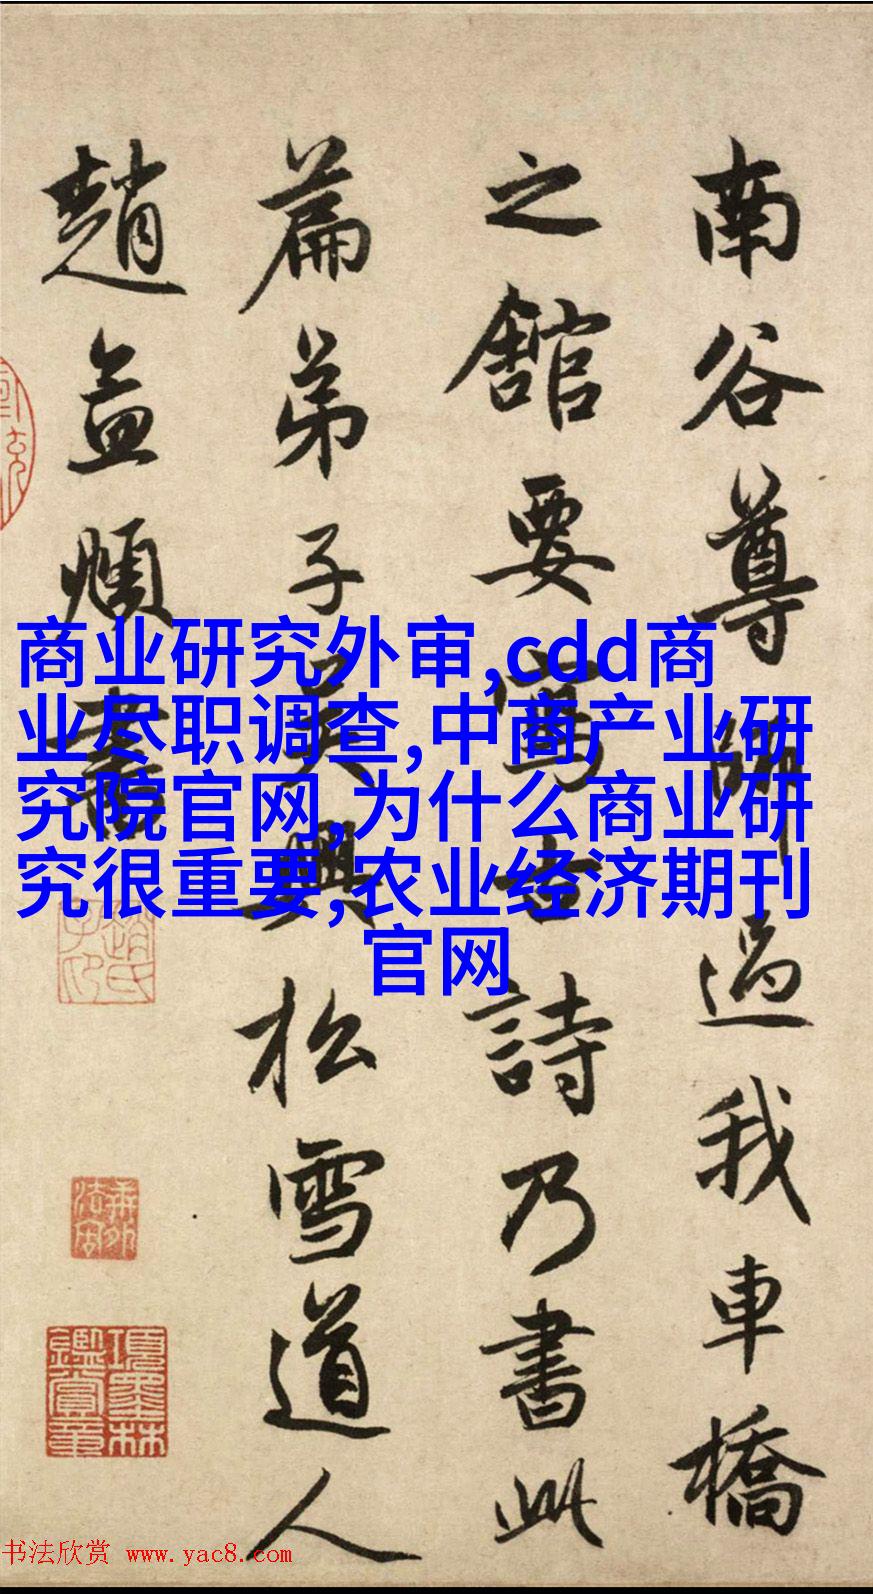 南谷尊師過我車橋
之舘要寫古詩乃書此
篇弟子吳興松雪道人
趙孟頫書
商业研究外审,cdd商
业尽职调查,中商产业研
究院官网,为什么商业研
究很重要,农业经济期刊
官网
項墨林鑑賞章
书法欣赏 www.yac8.com